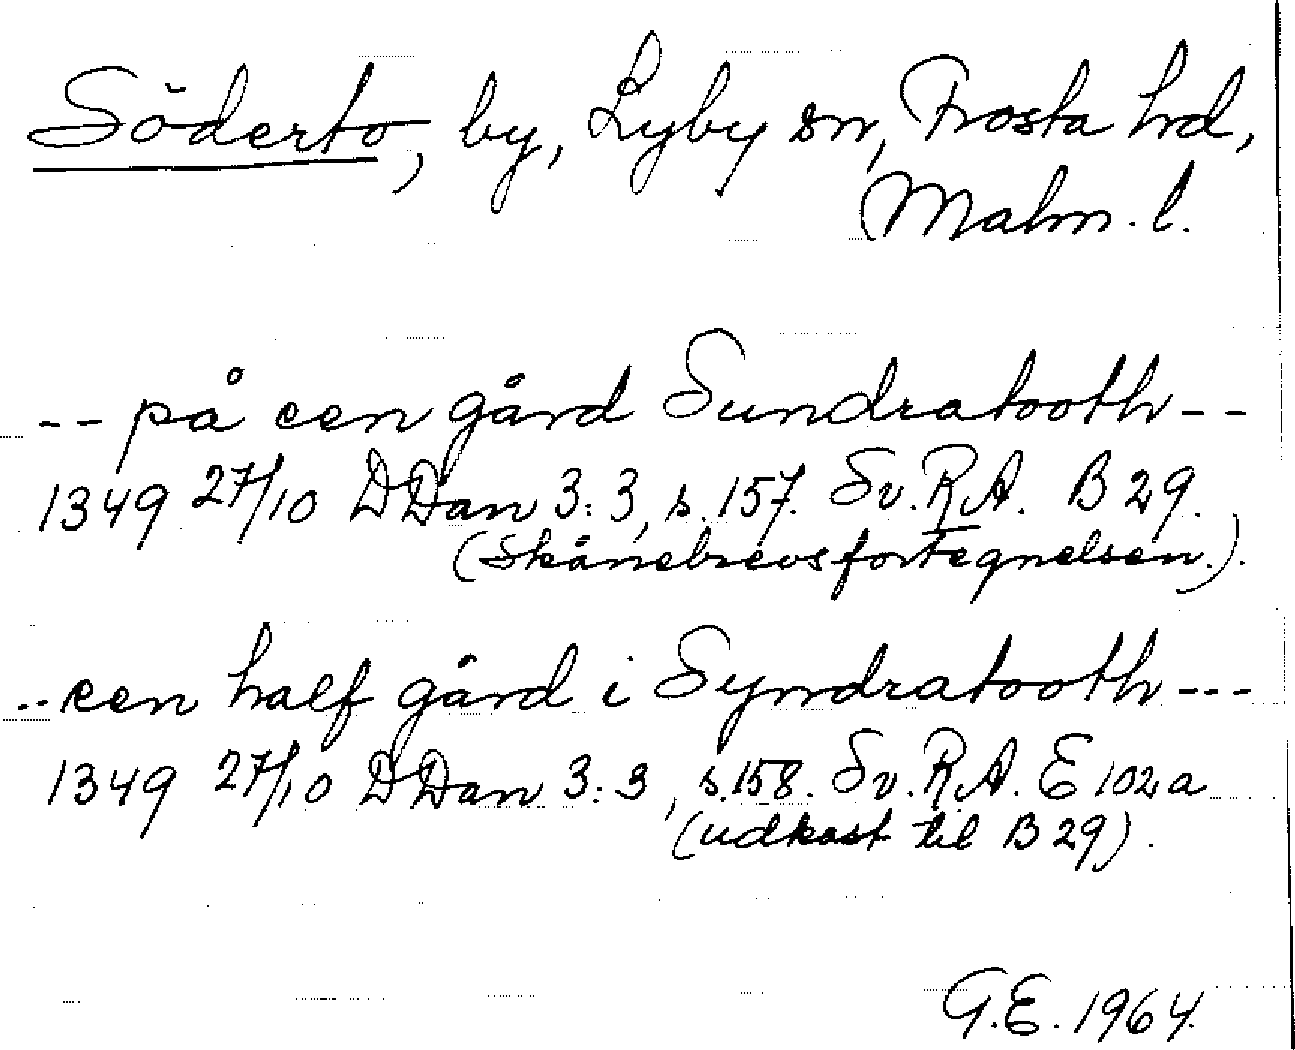 Söderto, by, Lyby sn, Frosta hd,
Malm. l.
-- på een gård Sundratooth --
1349 27/10 DDan 3:3, s. 157. Sv. RA. B 29.
(Skånebrevsfortegnelsen.).
-- een half gård i Syndratooth ---
1349 27/10 DDan 3:3, s. 158. Sv. RA. E 102a
(udkast til B 29).
G.E. 1964.